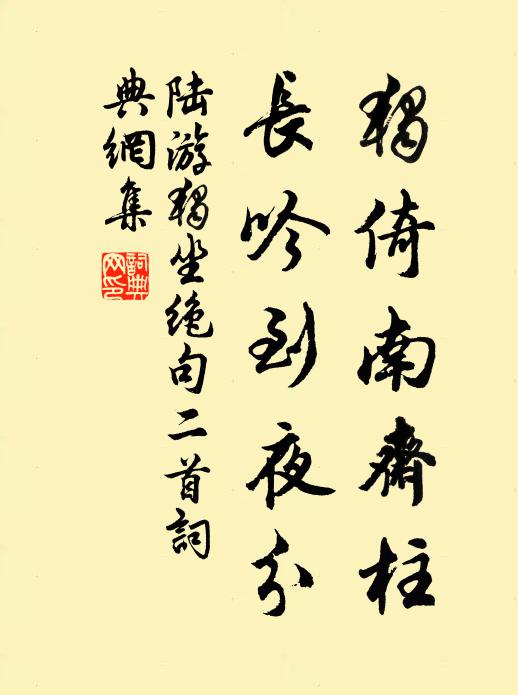 獨倚南齋柱
長吟到夜分
陸游獨坐绝句二首詞
典網集
詞典网印